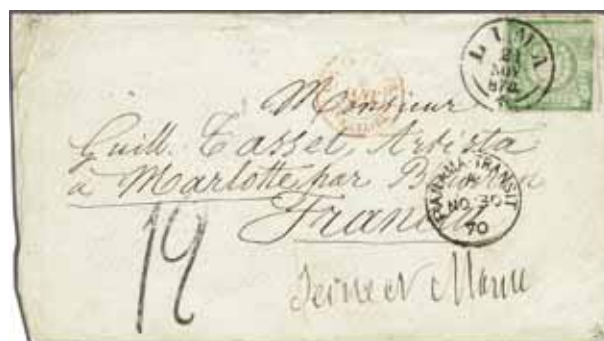 LIMA
21
NOV
Monsieur
Guill. Tasset, Artista
à Marlotte par Bourron
France
PANAMA-TRANSIT
A
NO 30
70
12
Seine et Marne